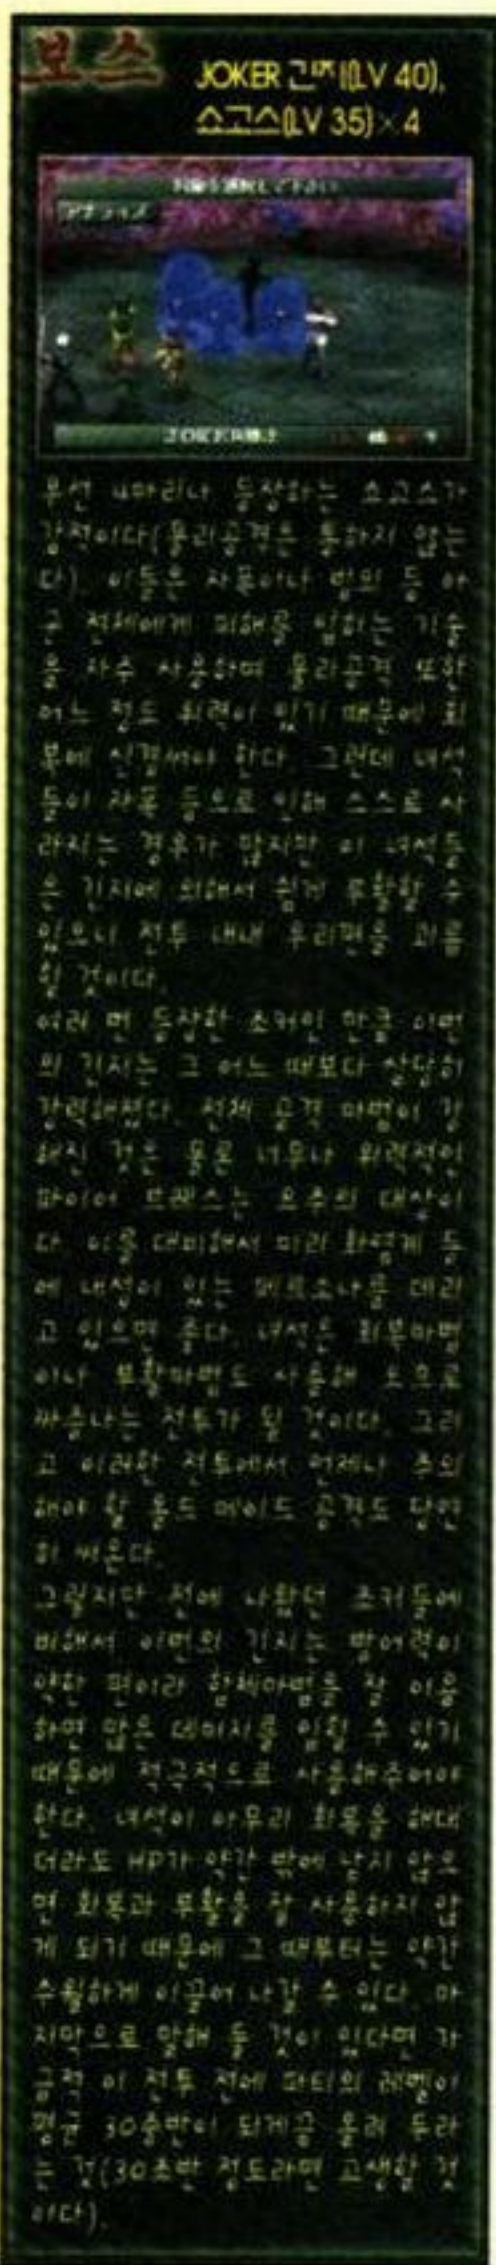 보스
JOKER 긴지(LV 40),
쇼고스(LV 35)×4
우선 4마리나 등장하는 쇼고스가
강적이다(물리공격은 통하지 않는
다). 이들은 자폭이나 범의 등 아
군 전체에게 피해를 입히는 기술
을 자주 사용하며 물리공격 또한
어느 정도 위력이 있기 때문에 회
복에 신경써야 한다. 그런데 녀석
들이 자폭 등으로 인해 스스로 사
라지는 경우가 많지만 이 녀석들
은 긴지에 의해서 쉽게 부활할 수
있으니 전투 내내 우리편을 괴롭
힐 것이다.
여러 번 등장한 조커인 만큼 이번
의 긴지는 그 어느 때보다 상당히
강력해졌다. 전체 공격 마법이 강
해진 것은 물론 너무나 위력적인
파이어 브레스는 요주의 대상이
다. 이를 대비해서 미리 화염계 등
에 내성이 있는 페르소나를 데리
고 있으면 좋다. 녀석은 회복마법
이나 부활마법도 사용해 오므로
짜증나는 전투가 될 것이다. 그리
고 이러한 전투에서 언제나 주의
해야 할 올드 메이드 공격도 당연
히 써온다.
그렇지만 전에 나왔던 조커들에
비해서 이번의 긴지는 방어력이
약한 편이라 합체마법을 잘 이용
하면 많은 데미지를 입힐 수 있기
때문에 적극적으로 사용해주어야
한다. 녀석이 아무리 회복을 해대
더라도 HP가 약간 밖에 남지 않으
면 회복과 부활을 잘 사용하지 않
게 되기 때문에 그 때부터는 약간
수월하게 이끌어 나갈 수 있다. 마
지막으로 말해 둘 것이 있다면 가
급적 이 전투 전에 파티의 레벨이
평균 30중반이 되게끔 올려 두라
는 것(30초반 정도라면 고생할 것
이다).